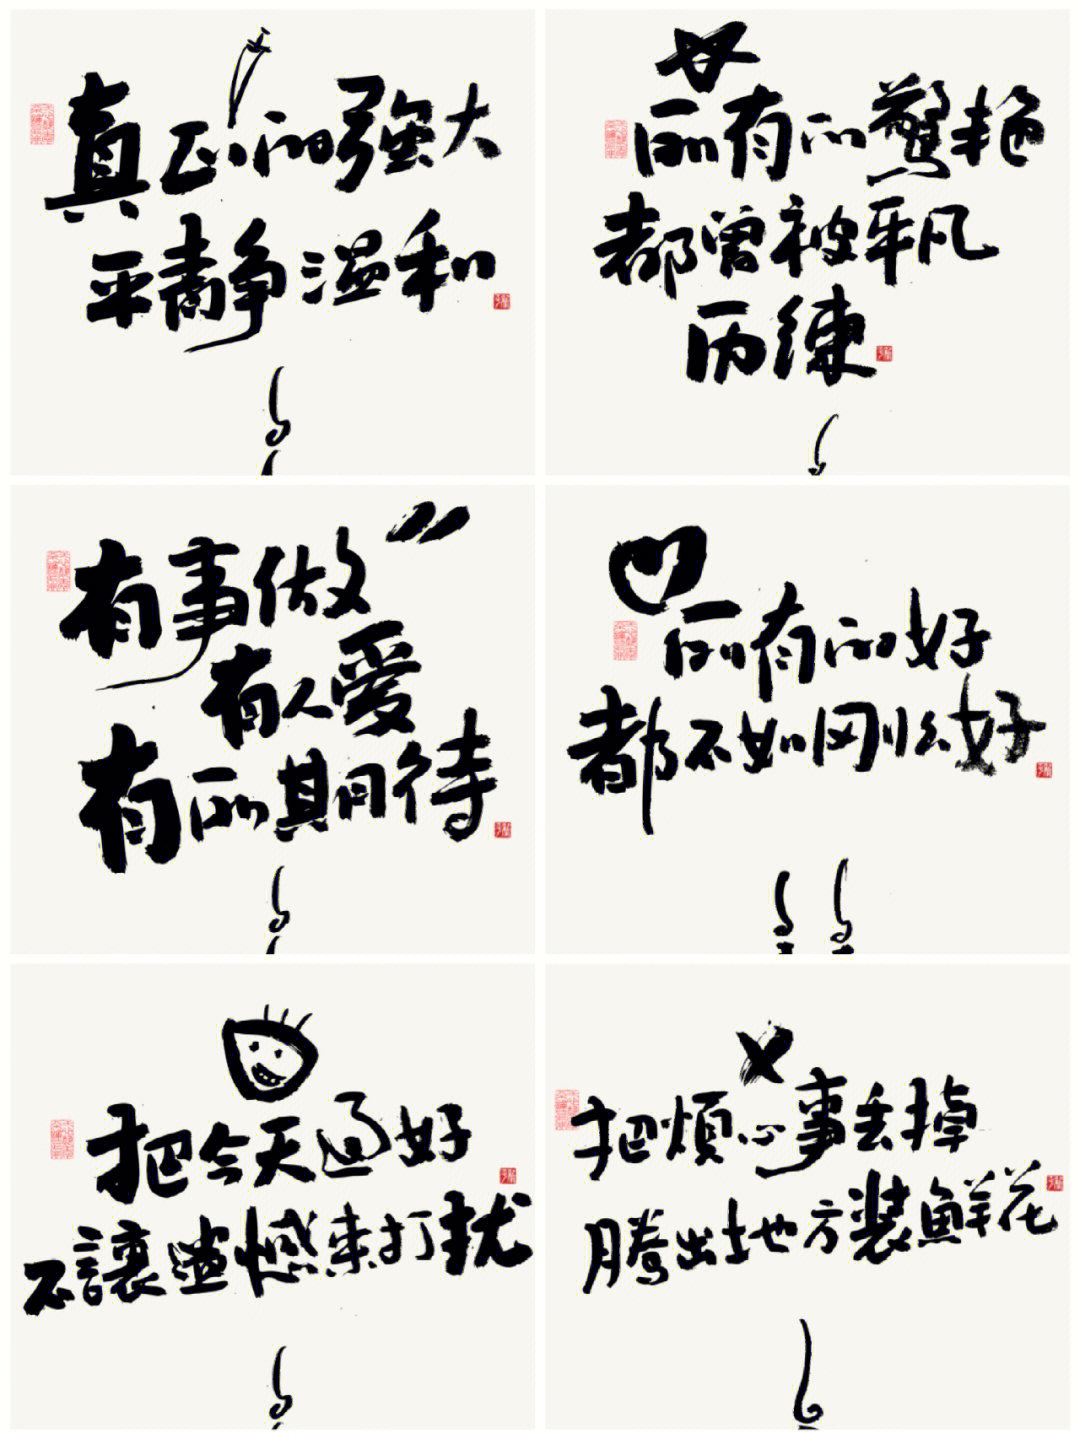 真正的強大
平靜溫和
所有的驚艳
都曾被平凡
历練
有事做
有人爱
有所期待
所有的好
都不如刚么好
把今天过好
不讓遗憾来打扰
把煩心事丢掉
腾出地方裝鮮花